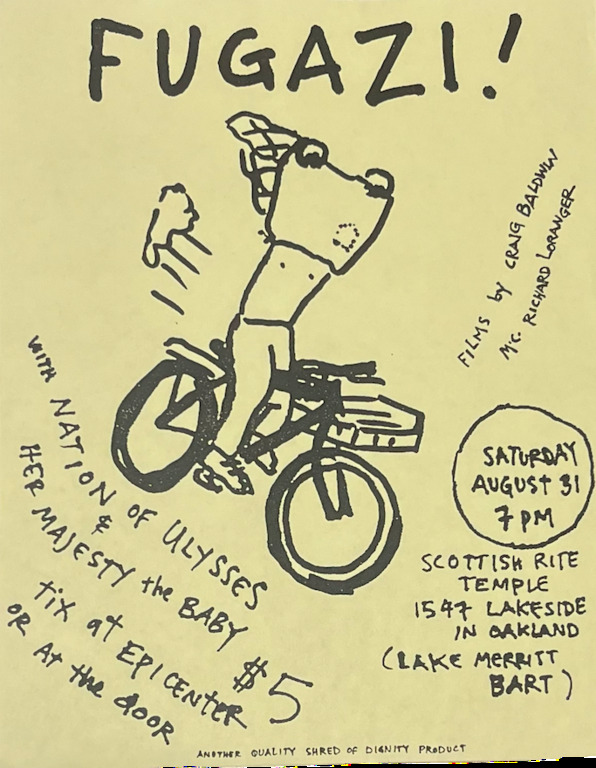 FUGAZI!
FILMS by CRAIG BALDWIN
MC. RICHARD LORANGER
WITH NATION OF ULYSSES
&
HER MAJESTY the BABY
tix at EPICENTER $5
OR At the dooR
SATURDAY
AUGUST 31
7 PM
SCOTTISH RITE
TEMPLE
1547 LAKESIDE
IN OAKLAND
(LAKE MERRITT
BART)
ANOTHER QUALITY SHRED OF DIGNITY PRODUCT